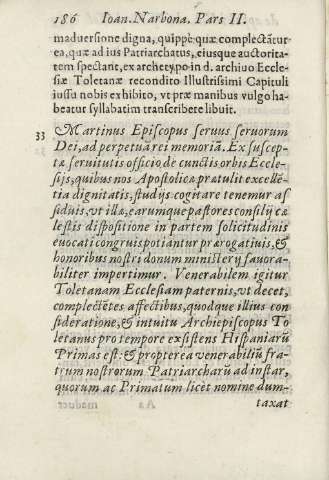 186 Ioan. Narbona. Pars II.
maduersione digna, quippè quæ complectãtur
ea, quæ ad ius Patriarchatus, eiusque auctorita-
tem spectant, ex archetypo in d. archiuo Eccle-
siæ Toletanæ recondito Illustrissimi Capituli
iussu nobis exhibito, vt præ manibus vulgo ha-
beatur syllabatim transcribere libuit.
33 Martinus Episcopus seruus seruorum
Dei, ad perpetuã rei memoriã. Ex suscep-
tæ seruitutis officio, de cunctis orbis Eccle-
sijs, quibus nos Apostolica prætulit excellẽ-
tia dignitatis, studijs cogitare tenemur as
siduis, vt illæ, earumque pastores consilij cæ
lestis dispositione in partem solicitudinis
euocati congruis potiantur prærogatiuis, &
honoribus nostri donum ministerij fauora-
biliter impertimur. Venerabilem igitur
Toletanam Ecclesiam paternis, vt decet,
complectẽtes affectibus, quodque illius con
sideratione, & intuitu Archiepiscopus To
letanus pro tempore existens Hispaniarũ
Primas est: & propterea venerabiliũ fra-
trum nostrorum Patriarcharũ ad instar,
quorum ac Primatum licet nomine dum-
taxat